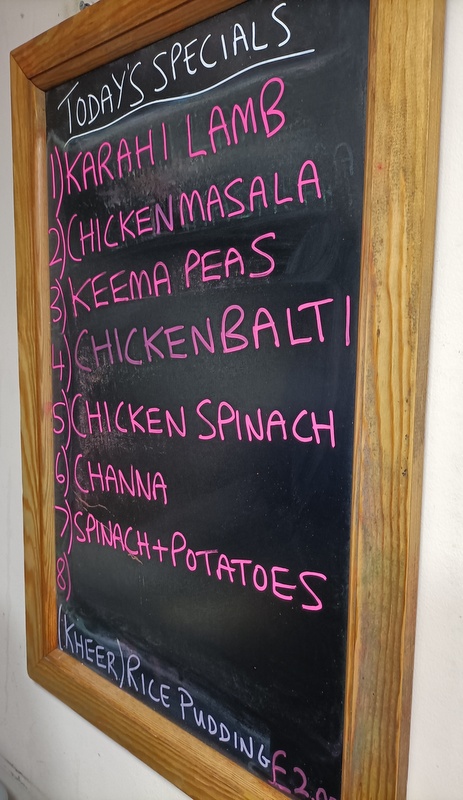 TODAY'S SPECIALS
1) KARAHI LAMB
2) CHICKEN MASALA
3) KEEMA PEAS
4) CHICKEN BALTI
5) CHICKEN SPINACH
6) CHANNA
7) SPINACH + POTATOES
8)
(KHEER) RICE PUDDING